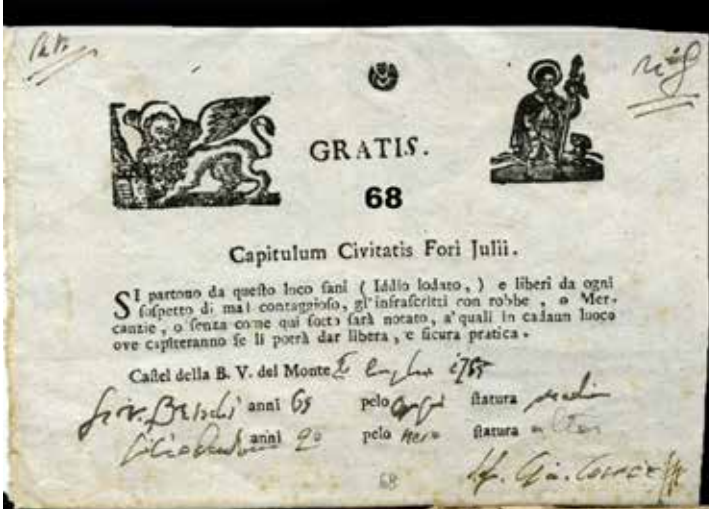 GRATIS.
68
Capitulum Civitatis Fori Julii.
SI partono da questo loco sani ( Iddio lodato, ) e liberi da ogni
sospetto di mal contaggioso, gl'infrascritti con robbe, o Mer-
canzie, o senza come qui sotto sarà notato, a' quali in cadaun luoco
ove capiteranno se li potrà dar libera, e sicura pratica.
Castel della B. V. del Monte luglio
anni pelo statura
anni 20 pelo nero statura
68